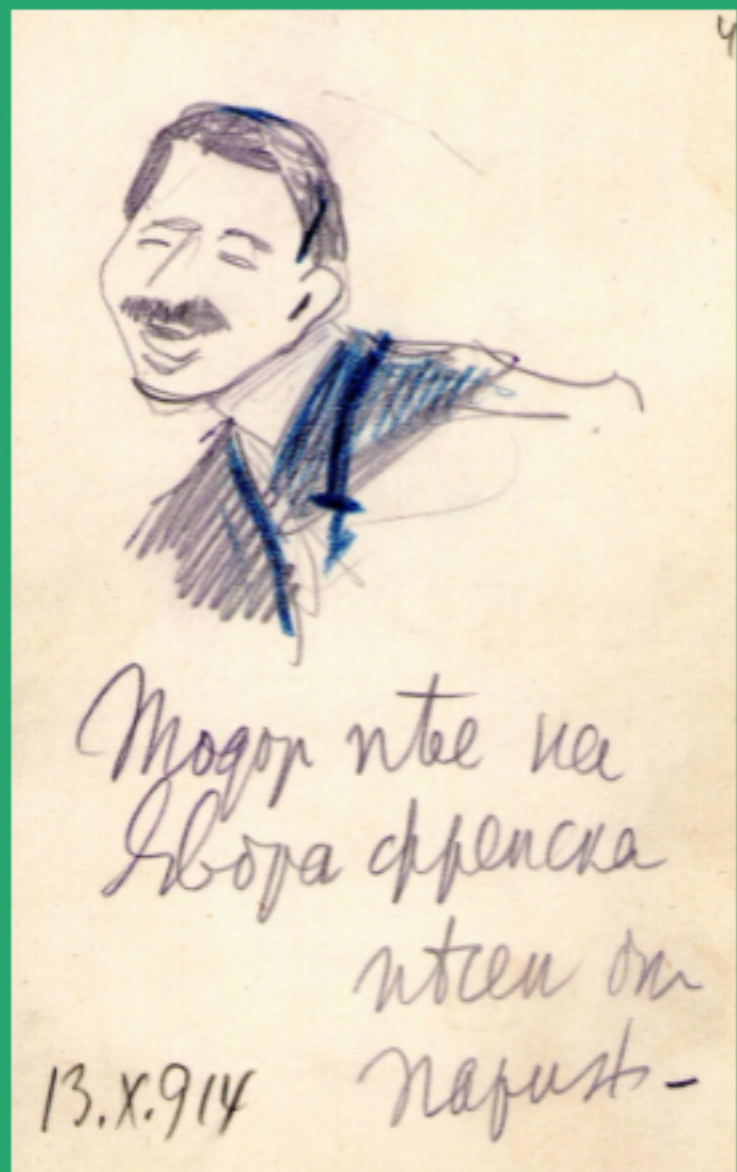 Тодор пѣе на
Явора френска
пѣсен от
13.X.914